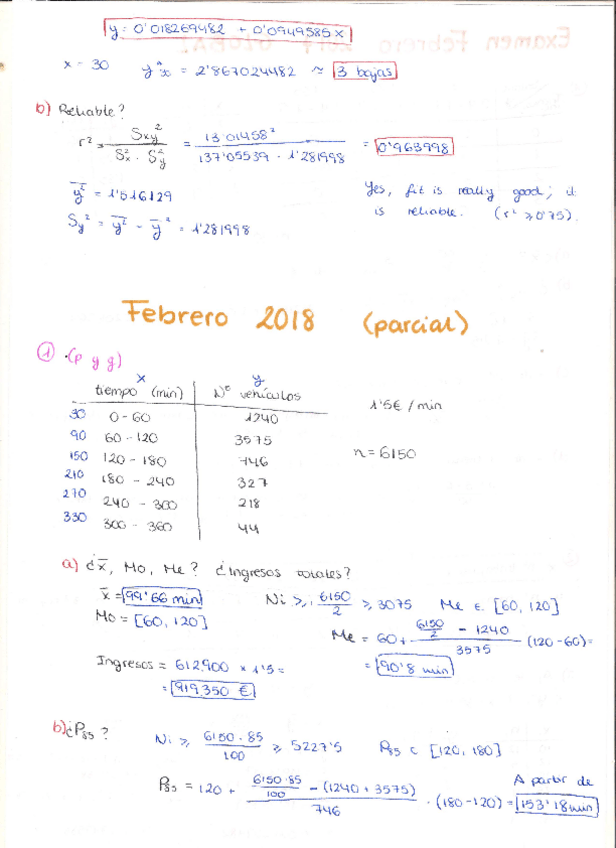 y = 0'018269482 + 0'0949585x
x = 30 y*x = 2'867024482 ≈ 3 bajas
b) Reliable?
r² = Sxy² / Sx² · Sy² = 13'01458² / 137'05539 · 1'281998 = 0'963998
y² = 1'516129
Sy² = y² - y² = 1'281998
Yes, fit is really good; it
is reliable. (r² > 0'75).
Febrero 2018 (parcial)
1) (p y g)
x y
tiempo (min) Nº vehículos
30 0-60 1240
90 60-120 3575
150 120-180 746
210 180-240 327
270 240-300 218
330 300-360 44
1'5€/min
n = 6150
a) ¿x̄, Mo, Me? ¿Ingresos totales?
x̄ = 99'66 min
Mo = [60, 120]
Ni ≥ 6150/2 ≥ 3075 Me ∈ [60, 120]
Me = 60 + (6150/2 - 1240) / 3575 (120-60) =
= 90'8 min
Ingresos = 612900 × 1'5 =
= 919.350 €
b) ¿P85?
Ni ≥ 6150·85 / 100 ≥ 5227'5 P85 ⊂ [120, 180]
P85 = 120 + (6150·85/100 - (1240 + 3575)) / 746 · (180-120) = 153'18 min
A partir de